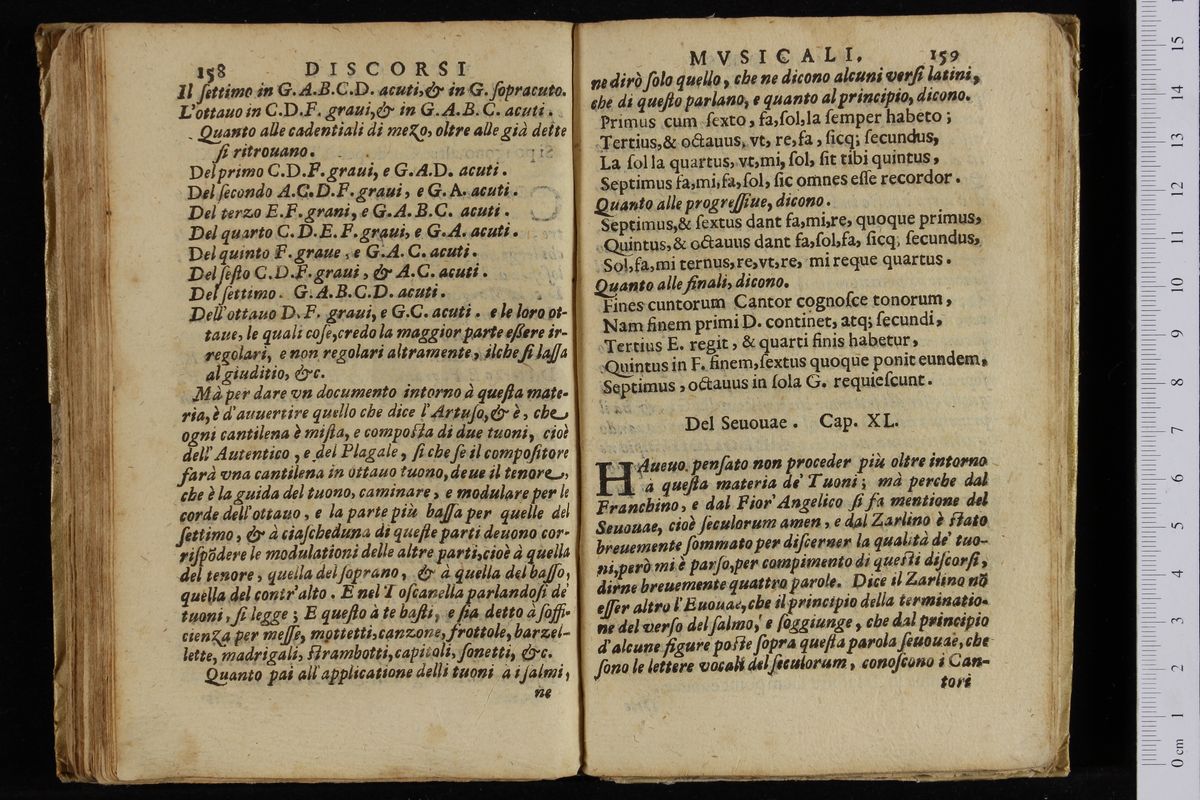 158 DISCORSI
Il ſettimo in G.A.B.C.D. acuti,& in G. ſopracuto.
L'ottauo in C.D.F. graui,& in G.A.B.C. acuti.
Quanto alle cadentiali di mezo, oltre alle già dette
ſi ritrouano.
Del primo C.D.F. graui, e G.A.D. acuti.
Del ſecondo A.C.D.F. graui, e G.A. acuti.
Del terzo E.F. grani, e G.A.B.C. acuti.
Del quarto C.D.E.F. graui, e G.A. acuti.
Del quinto F. graue, e G.A.C. acuti.
Del ſeſto C.D.F. graui, & A.C. acuti.
Del ſettimo. G.A.B.C.D. acuti.
Dell'ottauo D.F. graui, e G.C. acuti. e le loro ot-
taue, le quali coſe,credo la maggior parte eſſere ir-
regolari, e non regolari altramente, ilche ſi laſſa
al giuditio, &c.
Mà per dare vn documento intorno à queſta mate-
ria, è d'auuertire quello che dice l'Artuſo,& è, che
ogni cantilena è miſta, e compoſta di due tuoni, cioè
dell'Autentico, e del Plagale, ſi che ſe il compoſitore
farà vna cantilena in ottauo tuono, deue il tenore,
che è la guida del tuono, caminare, e modulare per le
corde dell'ottauo, e la parte più baſſa per quelle del
ſettimo, & à ciaſcheduna di queſte parti deuono cor-
riſpõdere le modulationi delle altre parti,cioè à quella
del tenore, quella del ſoprano, & à quella del baſſo,
quella del contr'alto. E nel Toſcanella parlandoſi de'
tuoni, ſi legge; E queſto à te baſti, e ſia detto à ſoffi-
cienza per meſſe, mottetti,canzone,frottole,barzel-
lette, madrigali, ſtrambotti,capitoli, ſonetti, &c.
Quanto pai all'applicatione delli tuoni a i ſalmi,
ne
MVSICALI. 159
ne dirò ſolo quello, che ne dicono alcuni verſi latini,
che di queſto parlano, e quanto al principio, dicono.
Primus cum ſexto, fa,ſol,la ſemper habeto;
Tertius,& octauus, vt, re,fa, ſicq; ſecundus,
La ſol la quartus, vt,mi, ſol, ſit tibi quintus,
Septimus fa,mi,fa,ſol, ſic omnes eſſe recordor.
Quanto alle progreſſiue, dicono.
Septimus,& ſextus dant fa,mi,re, quoque primus,
Quintus,& octauus dant fa,ſol,fa, ſicq; ſecundus,
Sol,fa,mi ternus,re,vt,re, mi reque quartus.
Quanto alle finali, dicono.
Fines cuntorum Cantor cognoſce tonorum,
Nam finem primi D. continet, atq; ſecundi,
Tertius E. regit, & quarti finis habetur,
Quintus in F. finem,ſextus quoque ponit eundem,
Septimus, octauus in ſola G. requieſcunt.
Del Seuouae. Cap. XL.
HAueuo penſato non proceder più oltre intorno
à queſta materia de' Tuoni; mà perche dal
Franchino, e dal Fior' Angelico ſi fa mentione del
Seuouae, cioè ſeculorum amen, e dal Zarlino è ſtato
breuemente ſommato per diſcerner la qualità de' tuo-
ni,però mi è parſo,per compimento di queſti diſcorſi,
dirne breuemente quattro parole. Dice il Zarlino nõ
eſſer altro l'Euouae,che il principio della terminatio-
ne del verſo del ſalmo, e ſoggiunge, che dal principio
d'alcune figure poſte ſopra queſta parola ſeuouae, che
ſono le lettere vocali del ſeculorum, conoſcono i Can-
tori